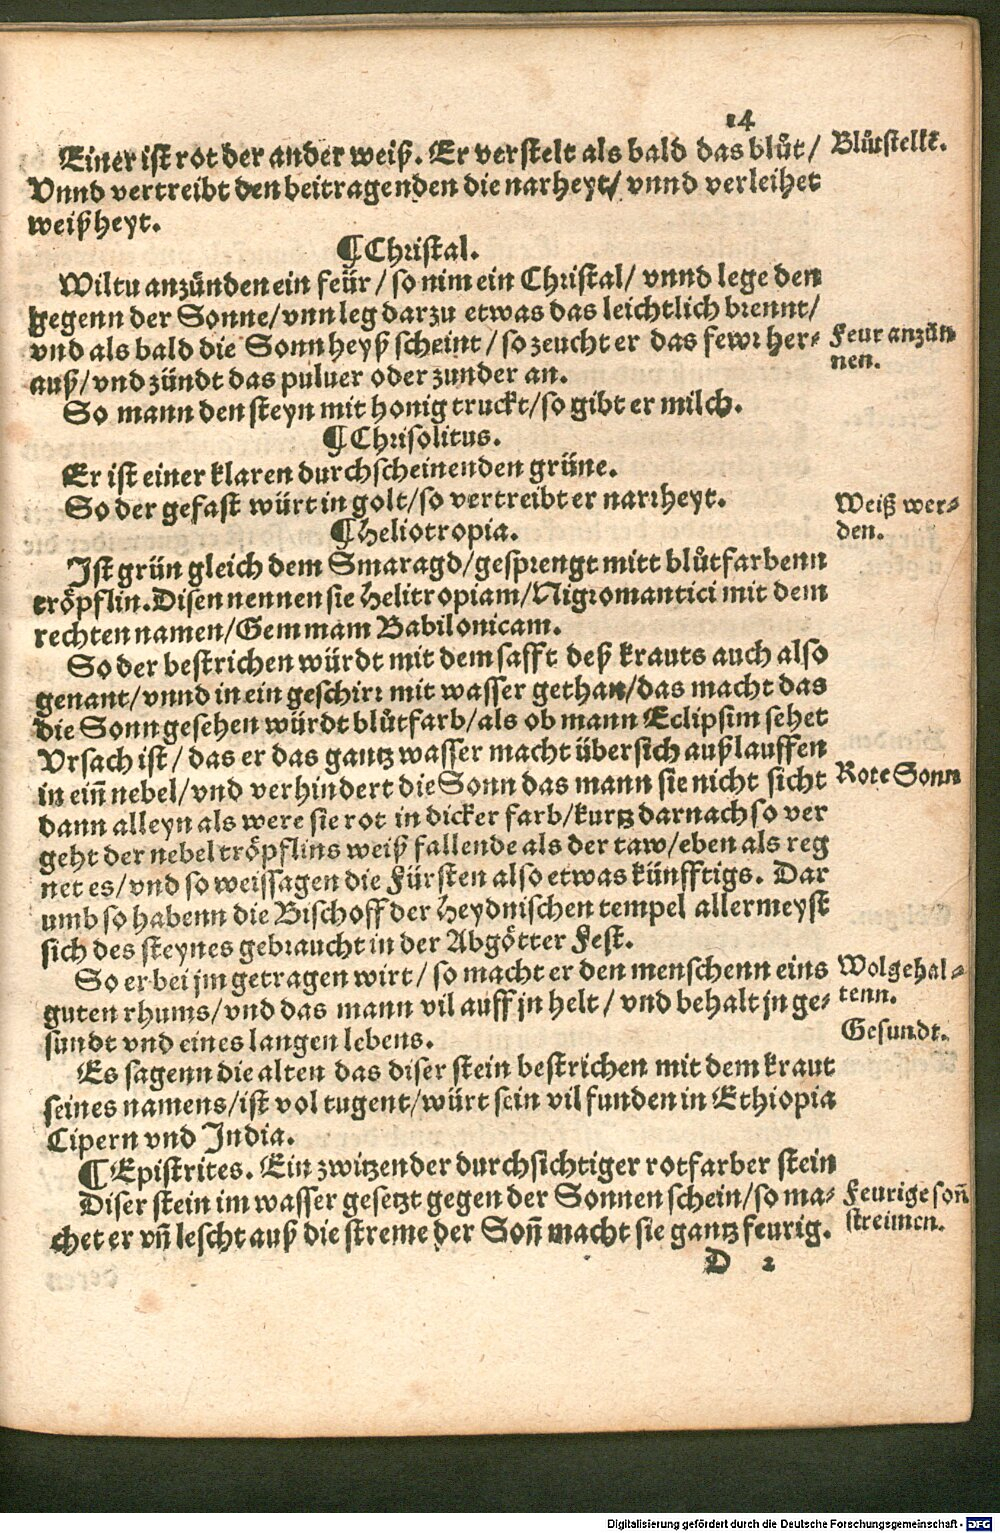 14
Einer ist rot der ander weiß. Er verstelt als bald das blůt/ Blůtstellt.
Vnnd vertreibt den beitragenden die narheyt/ vnnd verleihet
weißheyt.
¶ Christal.
Wiltu anzünden ein feür/ so nim ein Christal/ vnnd lege den
gegenn der Sonne/ vnn leg darzu etwas das leichtlich brennt/
vnd als bald die Sonn heyß scheint/ so zeucht er das fewr her⸗ Feur anzün
auß/ vnd zündt das puluer oder zunder an. nen.
So mann den steyn mit honig truckt/ so gibt er milch.
¶ Chrisolitus.
Er ist einer klaren durchscheinenden grüne.
So der gefast würt in golt/ so vertreibt er narrheyt. Weiß wer⸗
¶ Heliotropia. den.
Ist grün gleich dem Smaragd/ gesprengt mitt blůtfarbenn
tröpflin. Disen nennen sie Helitropiam/ Nigromantici mit dem
rechten namen/ Gemmam Babilonicam.
So der bestrichen würdt mit dem safft deß krauts auch also
genant/ vnnd in ein geschirr mit wasser gethan/ das macht das
die Sonn gesehen würdt blůtfarb/ als ob mann Eclipsim sehet
Vrsach ist/ das er das gantz wasser macht übersich außlauffen
in ein̄ nebel/ vnd verhindert die Sonn das mann sie nicht sicht Rote Sonn
dann alleyn als were sie rot in dicker farb/ kurtz darnach so ver
geht der nebel tröpflins weiß fallende als der taw/ eben als reg
net es/ vnd so weissagen die Fürsten also etwas künfftigs. Dar
umb so habenn die Bischoff der Heydnischen tempel allermeyst
sich des steynes gebraucht in der Abgötter Fest.
So er bei jm getragen wirt/ so macht er den menschenn eins Wolgehal⸗
guten rhums/ vnd das mann vil auff jn helt/ vnd behalt jn ge⸗ tenn.
sundt vnd eines langen lebens. Gesundt.
Es sagenn die alten das diser stein bestrichen mit dem kraut
seines namens/ ist vol tugent/ würt sein vil funden in Ethiopia
Cipern vnd India.
¶ Epistrites. Ein zwitzender durchsichtiger rotfarber stein
Diser stein im wasser gesetzt gegen der Sonnen schein/ so ma⸗ Feurige son̄
chet er vn̄ lescht auß die streme der Son̄ macht sie gantz feurig. streimen.
D 2
Digitalisierung gefördert durch die Deutsche Forschungsgemeinschaft - DFG